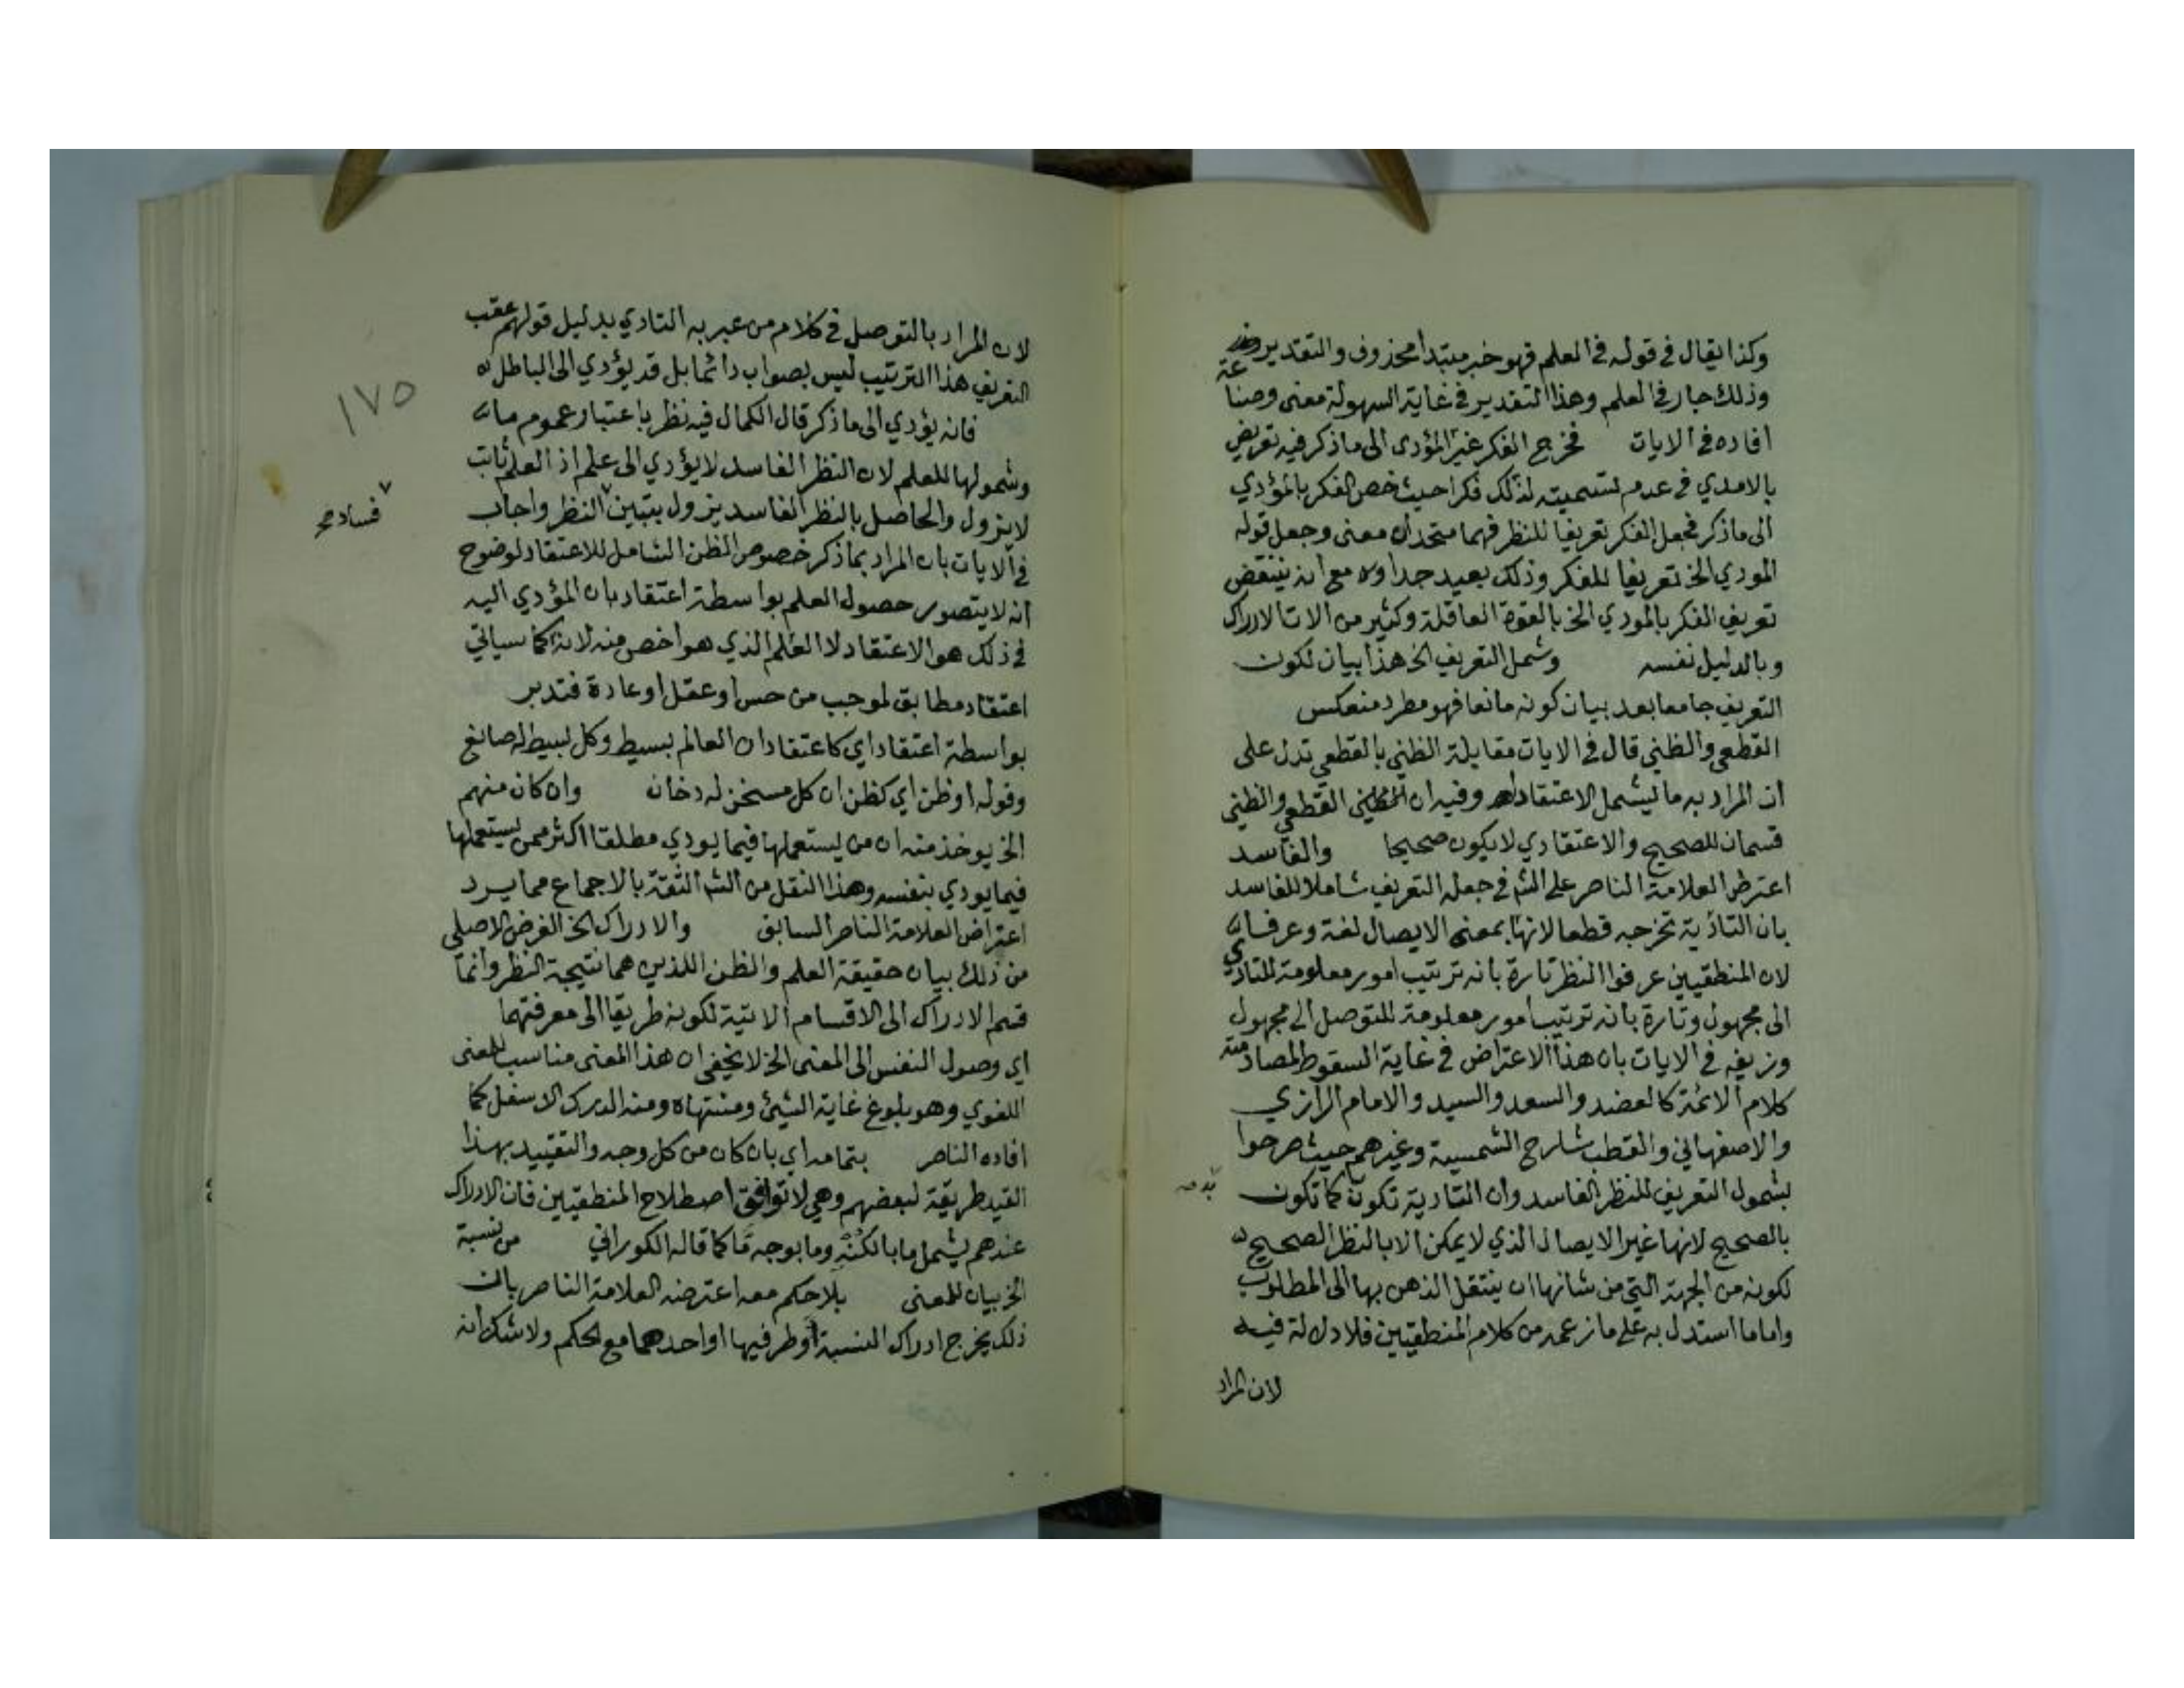 وكذا يقال في قوله في العلم فهو خبر مبتدا محذوف والتقدير
وذلك جار في العلم وهذا التقدير في غاية السهولة معنى وصنا
عة
افاده في الايات فخرج الفكر غير المؤدى الى ما ذكر فيه تعريض
بالامدي في عدم تسميته لذلك فكرا حيث خص الفكر بالمؤدي
الى ما ذكر فجعل الفكر تعريفا للنظر فهما متحدان معنى وجعل قوله
المودي الخ تعريفا للفكر وذلك بعيد جدا اه مع انه ينتقض
تعريف الفكر بالمودي الخ بالقوة العاقلة وكثير من الات الادراك
وبالدليل نفسه وشمل التعريف الخ هذا بيان لكون
التعريف جامعا بعد بيان كونه مانعا فهو مطرد منعكس
القطعي والظني قال في الايات مقابلة الظني بالقطعي تدل على
ان المراد به ما يشمل الاعتقاد اه وفيه ان القطعي والظني
قسمان للصحيح والاعتقادي لا يكون صحيحا والفاسد
اعترض العلامة الناصر على الش في جعله التعريف شاملا للفاسد
بان التادية تخرجه قطعا لانها بمعنى الايصال لغة وعرفا
لان المنطقيين عرفوا النظر تارة بانه ترتيب امور معلومة للتادي
الى مجهول وتارة بانه ترتيب امور معلومة للتوصل الى مجهول
وزيفه في الايات بان هذا الاعتراض في غاية السقوط لمصادمته
كلام الائمة كالعضد والسعد والسيد والامام الرازي
والاصفهاني والقطب شارح الشمسية وغيرهم حيث صرحوا
بشمول التعريف للنظر الفاسد وان التادية تكون كما تكون
به صح
بالصحيح لانها غير الايصال الذي لا يمكن الا بالنظر الصحيح
لكونه من الجهة التي من شانها ان ينتقل الذهن بها الى المطلوب
واما ما استدل به على ما زعمه من كلام المنطقيين فلا دلالة فيه
لان المراد
لان المراد بالتوصل في كلام من عبر به التادي بدليل قولهم عقب
التعريف هذا الترتيب ليس بصواب دائما بل قد يؤدي الى الباطل اه
١٧٥
فانه يؤدي الى ما ذكر قال الكمال فيه نظر باعتبار عموم ما
وشمولها للعلم لان النظر الفاسد لا يؤدي الى علم اذ العلم ثابت
لا يزول والحاصل بالنظر الفاسد يزول بتبين النظر واجاب
فساد صح
في الايات بان المراد بما ذكر خصوص الظن الشامل للاعتقاد لوضوح
انه لا يتصور حصول العلم بواسطة اعتقاد بان المؤدي اليه
في ذلك هو الاعتقاد لا العلم الذي هو اخص منه لانه كما سياتي
اعتقاد مطابق لموجب من حس او عقل او عادة فتدبر
بواسطة اعتقاد اي كاعتقاد ان العالم بسيط وكل بسيط له صانع
وقوله او ظن اي كظن ان كل مسخن له دخان وان كان منهم
الخ يوخذ منه ان من يستعملها فيما يودي مطلقا اكثر ممن يستعملها
فيما يودي بنفسه وهذا النقل من الش الثقة بالاجماع مما يرد
اعتراض العلامة الناصر السابق والادراك الخ الغرض الاصلي
من ذلك بيان حقيقة العلم والظن اللذين هما نتيجة النظر وانما
قسم الادراك الى الاقسام الاتية لكونه طريقا الى معرفتهما
اي وصول النفس الى المعنى الخ لا يخفى ان هذا المعنى مناسب للمعنى
اللغوي وهو بلوغ غاية الشيئ ومنتهاه ومنه الدرك الاسفل كما
افاده الناصر بتمامه اي بان كان من كل وجه والتقييد بهذا
القيد طريقة لبعضهم وهي لا توافق اصطلاح المنطقيين فان الادراك
عندهم يشمل ما بالكنه وما بوجه ما كما قاله الكوراني من نسبة
الخ بيان للمعنى بلا حكم معه اعترضه العلامة الناصر بان
ذلك يخرج ادراك النسبة او طرفيها او احدهما مع الحكم ولا شك انه